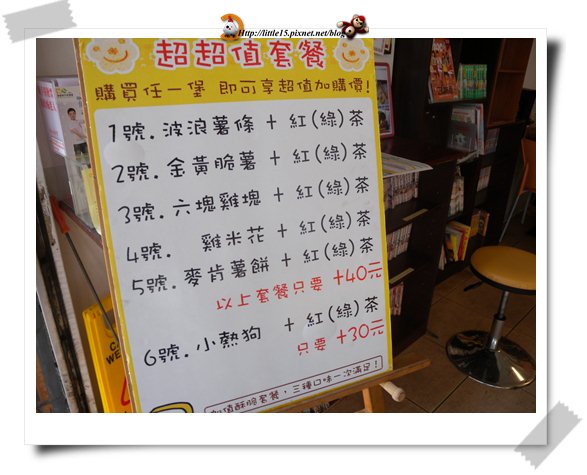 Http://little15.pixnet.net/blog
超超值套餐
購買任一堡 即可享超值加購價!
1號.波浪薯條+紅(綠)茶
2號.金黃脆薯+紅(綠)茶
3號.六塊雞塊+紅(綠)茶
4號. 雞米花+紅(綠)茶
5號.麥肯薯餅+紅(綠)茶
以上套餐只要 +40元
6號.小熱狗 +紅(綠)茶
只要 +30元
加值酥脆套餐,三種口味一次滿足!